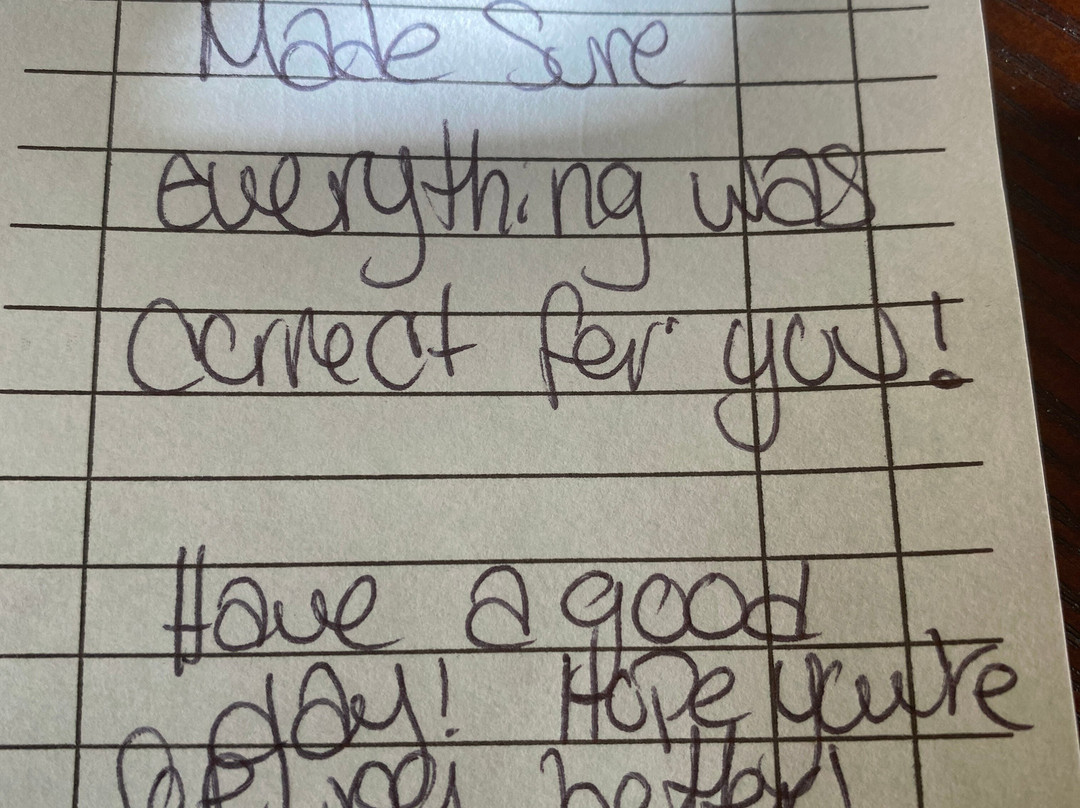 Made Sure
everything was
Correct for you!
Have a good
day! Hope you're